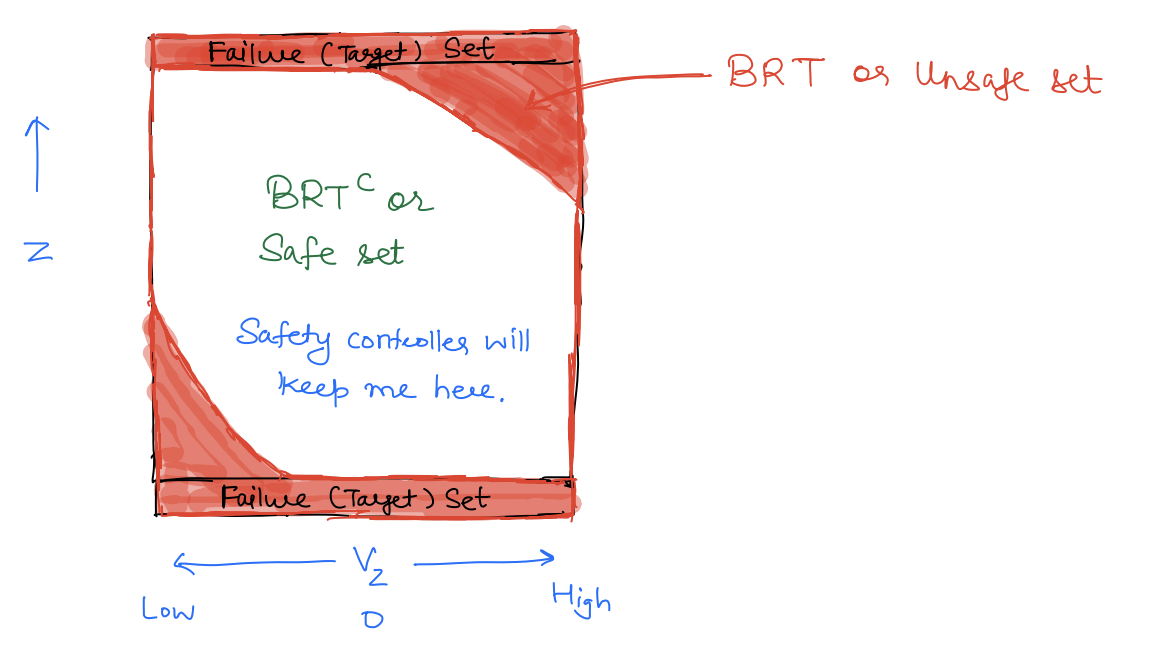 Failure (Target) Set
BRT or Unsafe set
BRTᶜ or
Safe set
Z
Safety controller will
keep me here.
Failure (Target) Set
V_z
Low
0
High